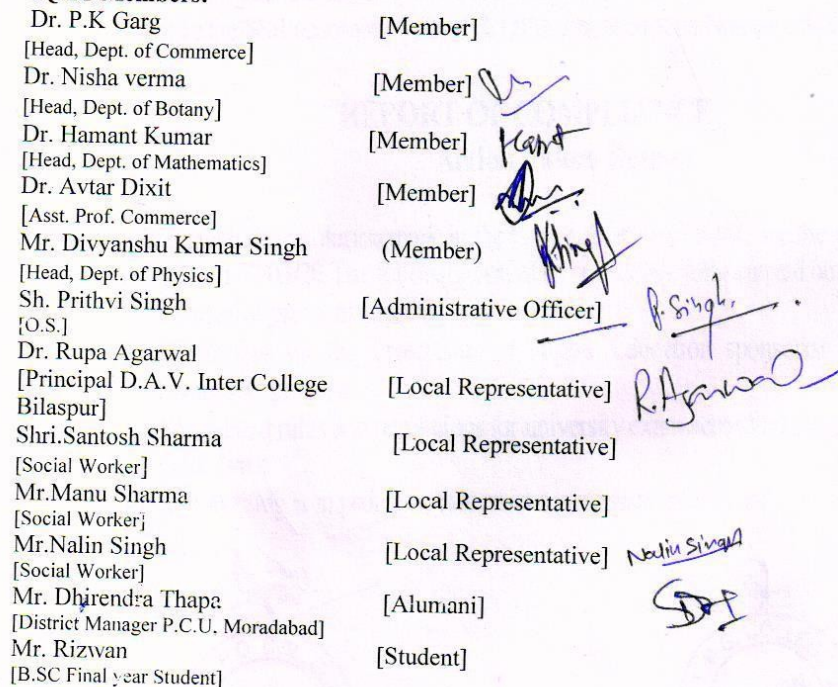 Members:
Dr. P.K Garg [Member]
[Head, Dept. of Commerce]
Dr. Nisha verma [Member]
[Head, Dept. of Botany]
Dr. Hamant Kumar [Member]
[Head, Dept. of Mathematics]
Dr. Avtar Dixit [Member]
[Asst. Prof. Commerce]
Mr. Divyanshu Kumar Singh (Member)
[Head, Dept. of Physics]
Sh. Prithvi Singh [Administrative Officer] P. Singh.
[O.S.]
Dr. Rupa Agarwal
[Principal D.A.V. Inter College [Local Representative] R. Agarwal
Bilaspur]
Shri.Santosh Sharma [Local Representative]
[Social Worker]
Mr.Manu Sharma [Local Representative]
[Social Worker]
Mr.Nalin Singh [Local Representative] Nalin Singh
[Social Worker]
Mr. Dhirendra Thapa [Alumani]
[District Manager P.C.U. Moradabad]
Mr. Rizwan [Student]
[B.SC Final year Student]